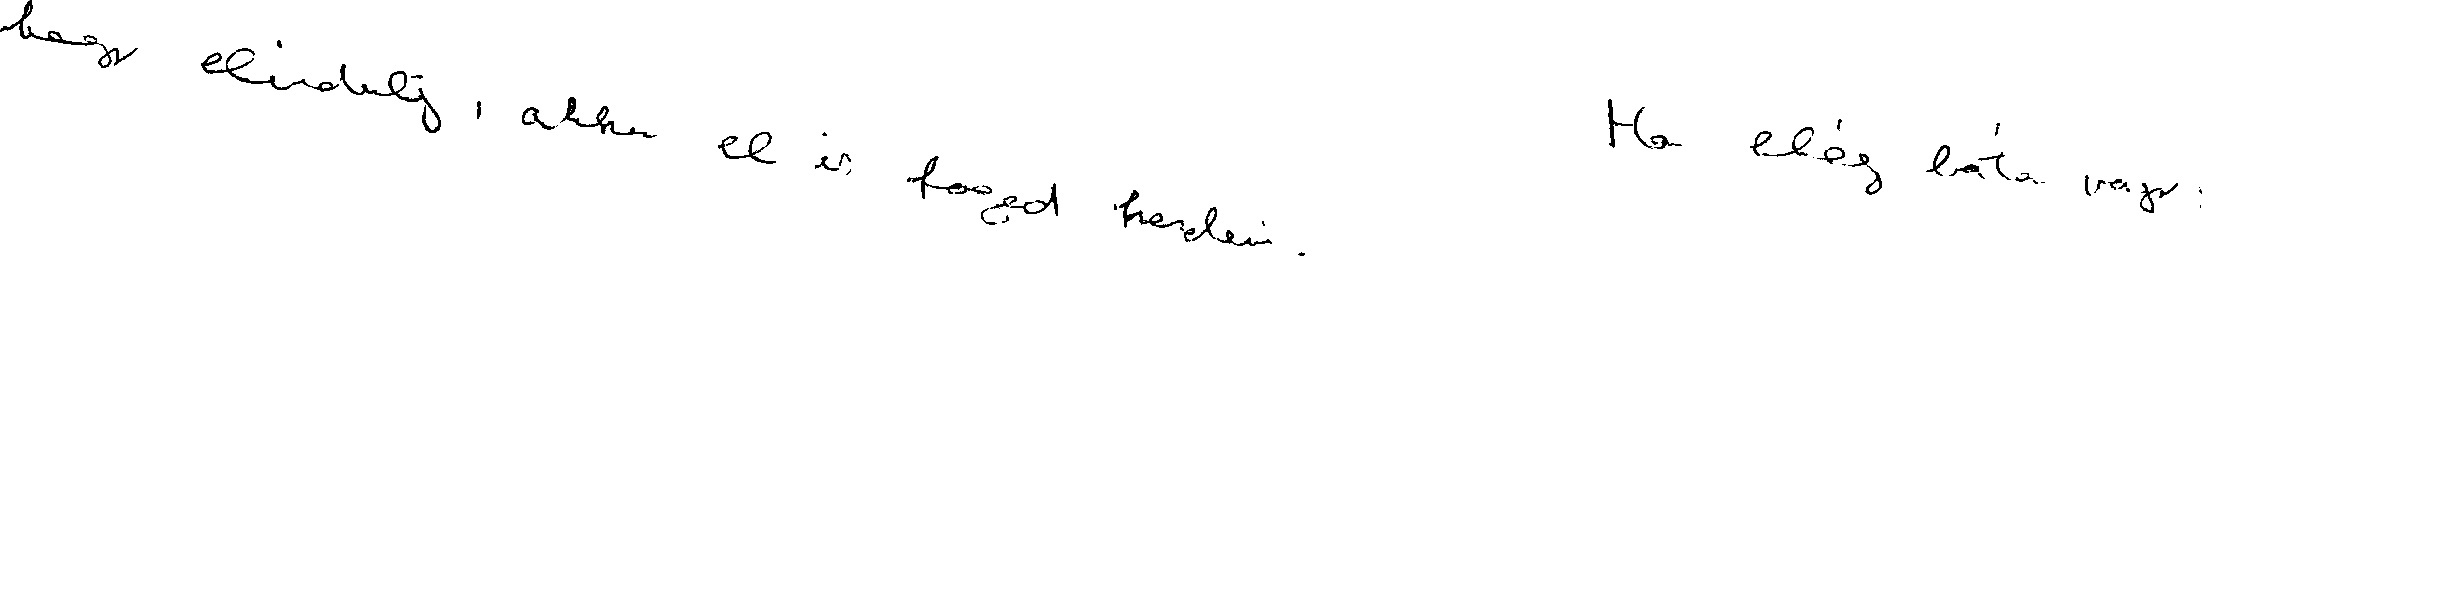 hogy elindulj, akkor el is fogod kezdeni.
Ha elég bátor vagy: